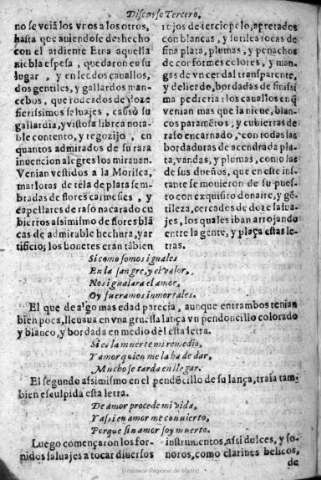 Discurso Tercero,
no se veiã los vnos a los otros,
hasta que auiendose deshecho
con el ardiente Etra aquella
niebla espesa, quedaron en su
lugar, y en lindos cauallos,
dos gentiles, y gallardos mancebos,
que rodeados de doze
fierissimos saluajes, causò su
gallardia, y vistosa librea notable
contento, y regozijo, en
quantos admirados de su rara
inuencion alegres los mirauan.
Venian vestidos a la Morisca,
marlotas de tela de plata sembradas
de flores carmesies, y
capellares de raso nacarado cubiertos
assimismo de flores blãcas
de admirable hechura, y artificio;
los bonetes eran tãbien
rojos de terciopelo, apretados
con blancas, y sutiles tocas de
fina plata, plumas, y penachos
de conformes colores, y mangas
de vn cendal transparente,
y delierdo, bordadas de finissima
pedreria: los cauallos en q̃
venian mas que la nieue, blancos
paramẽtos, y cubiertas de
raso encarnado, con todas las
bordaduras de acendrada plata,
vandas, y plumas, como las
de sus dueños, que en este instante
se mouieron de su puesto
con exquisito donaire, y gẽtileza,
cercados de doze saluajes,
los quales iban arrojando
entre la gente, y plaça estas letras.
Si como somos iguales
En la sangre, y el valor,
Nos igualara el amor,
Oy fueramos inmortales.
El que de algo mas edad parecia, aunque entrambos tenian
bien poca, lleuaua en vna gruessa lança vn pendoncillo colorado
y blanco, y bordada en medio del esta letra.
Si es la muerte mi remedio,
Y amor quien me la ha de dar,
Mucho se tarda en llegar.
El segundo assimismo en el pendõcillo de su lança, traia tambien
esculpida esta letra.
De amor procede mi vida,
Y assi en amor me conuierto,
Porque sin amor soy muerto.
Luego començaron los fornidos
saluajes a tocar diuersos
instrumentos, assi dulces, y sonoros,
como clarines belicos,
de
Biblioteca Regional de Madrid